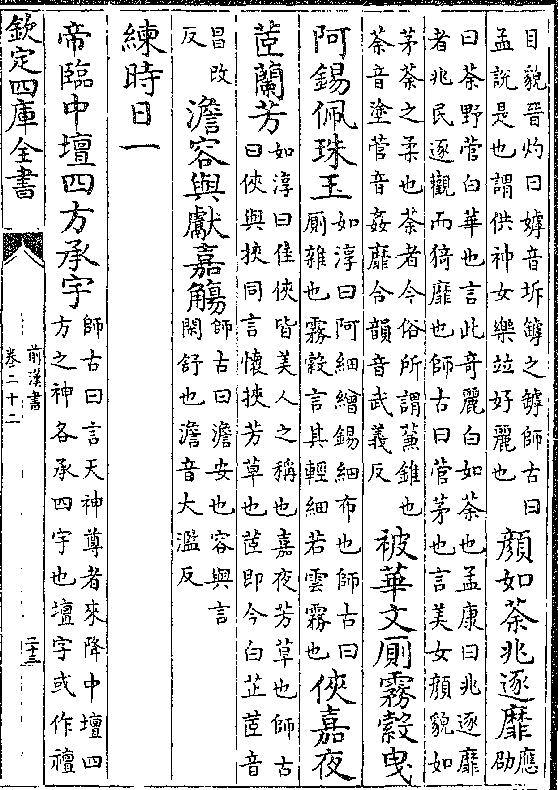 目貌晉灼曰嫭音坼罅之罅師古曰
孟說是也謂供神女樂竝好麗也
顏如荼兆逐靡
應
劭
曰荼野菅白華也言此奇麗白如荼也孟康曰兆逐靡
者兆民逐觀而猗靡也師古曰菅茅也言美女顏貌如
茅荼之柔也荼者今俗所謂蒹錐也
荼音塗菅音姦靡合韻音武義反
被華文厠霧縠曳
阿錫佩珠玉
如淳曰阿細繒錫細布也師古曰
厠雜也霧縠言其輕細若雲霧也
俠嘉夜
茝蘭芳
如淳曰佳俠皆美人之稱也嘉夜芳草也師古
曰俠與挾同言懷挾芳草也茝即今白芷茝音
昌改
反
澹容與獻嘉觴
師古曰澹安也容與言
閑舒也澹音大濫反
練時日一
帝臨中壇四方承宇
師古曰言天神尊者來降中壇四
方之神各承四宇也壇字或作襢
欽定四庫全書
前漢書
卷二十二
二十三